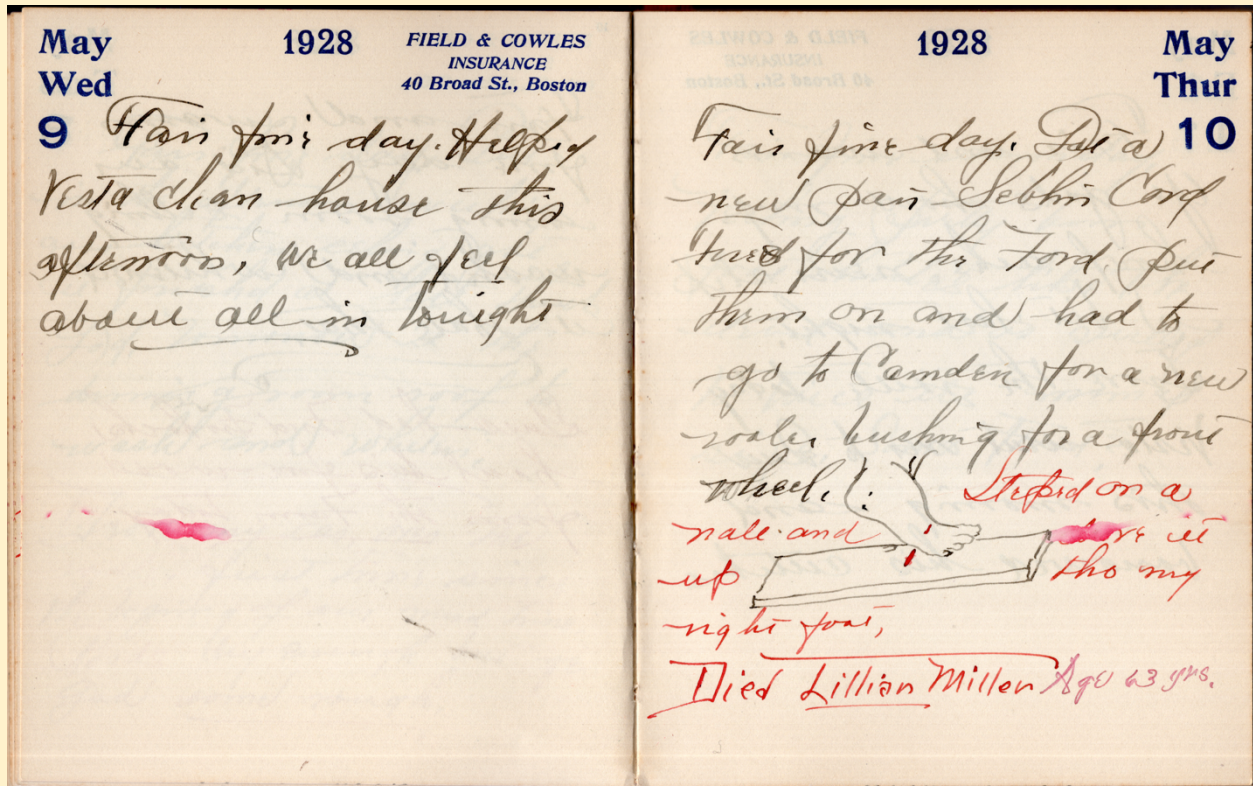 May
Wed
9
1928
FIELD & COWLES
INSURANCE
40 Broad St., Boston
Fair fine day. Helped
Vesta clean house this
afternoon, we all feel
about all in tonight
1928
May
Thur
10
Fair fine day. Put a
new pair Seblin Cord
Tires for the Ford put
them on and had to
go to Camden for a new
roler bushing for a front
wheel. Steped on a
nale and drove it
up tho my
right foot,
Died Lillian Miller Age 63 yrs.